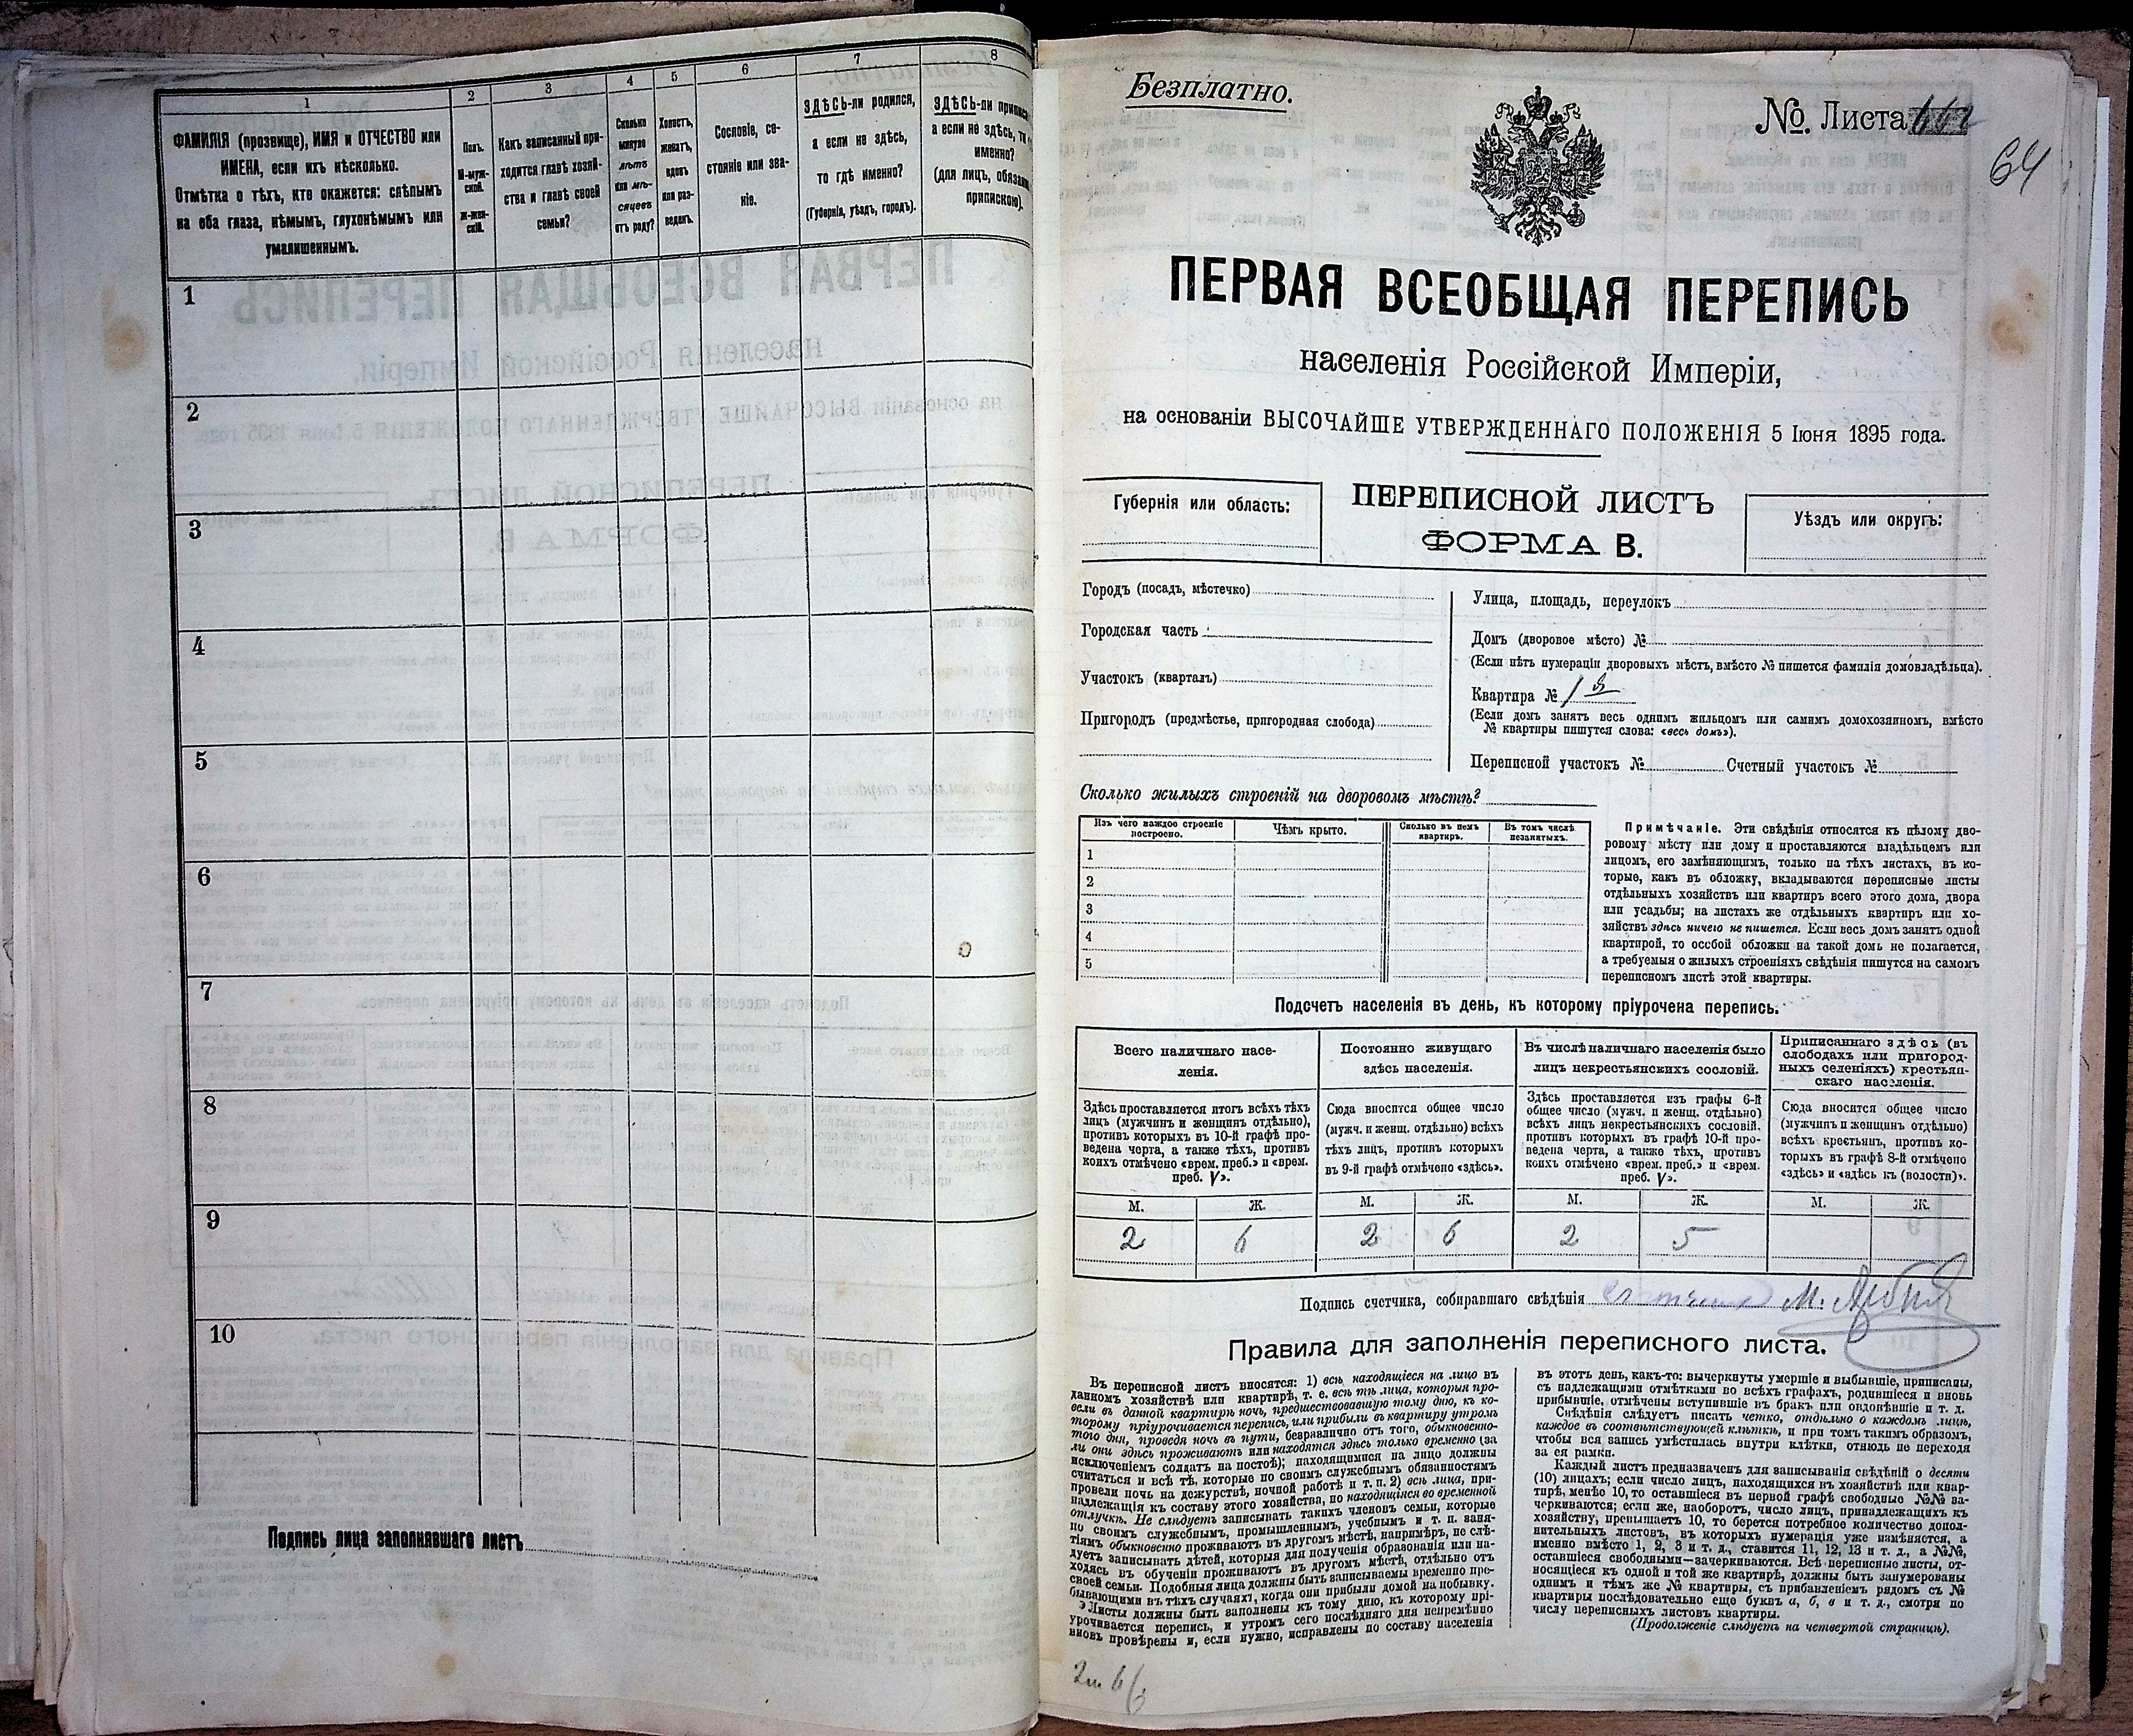 1
2
3
4
5
6
7
8
ФАМИЛІЯ (прозвище), ИМЯ и ОТЧЕСТВО или
ИМЕНА, если ихъ нѣсколько.
Отмѣтка о тѣхъ, кто окажется: слѣпымъ
на оба глаза, нѣмымъ, глухонѣмымъ или
умалишеннымъ.
Полъ.
М-муж-
ской.
Ж-жен-
скій.
Какъ записанный при-
ходится главѣ хозяй-
ства и главѣ своей
семьи?
Сколько
минуло
лѣтъ
или мѣ-
сяцевъ
отъ роду?
Холостъ,
женатъ,
вдовъ
или раз-
веденъ.
Сословіе, со-
стояніе или зва-
ніе.
ЗДѢСЬ-ли родился,
а если не здѣсь,
то гдѣ именно?
(Губернія, уѣздъ, городъ).
ЗДѢСЬ-ли приписа
а если не здѣсь, то
именно?
(для лицъ, обяза
припискою).
1
2
3
4
5
6
7
8
9
10
Подпись лица заполнявшаго листъ
Безплатно.
№ Листа
64
ПЕРВАЯ ВСЕОБЩАЯ ПЕРЕПИСЬ
населенія Россійской Имперіи,
на основаніи ВЫСОЧАЙШЕ УТВЕРЖДЕННАГО ПОЛОЖЕНІЯ 5 Іюня 1895 года.
Губернія или область:
ПЕРЕПИСНОЙ ЛИСТЪ
ФОРМА В.
Уѣздъ или округъ:
Городъ (посадъ, мѣстечко)
Городская часть
Участокъ (кварталъ)
Пригородъ (предмѣстье, пригородная слобода)
Улица, площадь, переулокъ
Домъ (дворовое мѣсто) №
(Если нѣтъ нумераціи дворовыхъ мѣстъ, вмѣсто № пишется фамилія домовладѣльца).
Квартира № 1
(Если домъ занятъ весь однимъ жильцомъ или самимъ домохозяиномъ, вмѣсто
№ квартиры пишутся слова: «весь домъ»).
Переписной участокъ № Счетный участокъ №
Сколько жилыхъ строеній на дворовомъ мѣстѣ?
Изъ чего каждое строеніе
построено.
Чѣмъ крыто.
Сколько въ немъ
квартиръ.
Въ томъ числѣ
незанятыхъ.
1
2
3
4
5
Примѣчаніе. Эти свѣдѣнія относятся къ цѣлому дво-
ровому мѣсту или дому и проставляются владѣльцемъ или
лицомъ, его замѣняющимъ, только на тѣхъ листахъ, въ ко-
торые, какъ въ обложку, вкладываются переписные листы
отдѣльныхъ хозяйствъ или квартиръ всего этого дома, двора
или усадьбы; на листахъ же отдѣльныхъ квартиръ или хо-
зяйствъ здѣсь ничего не пишется. Если весь домъ занятъ одной
квартирой, то особой обложки на такой домъ не полагается,
а требуемыя о жилыхъ строеніяхъ свѣдѣнія пишутся на самомъ
переписномъ листѣ этой квартиры.
Подсчетъ населенія въ день, къ которому пріурочена перепись.
Всего наличнаго насе-
ленія.
Постоянно живущаго
здѣсь населенія.
Въ числѣ наличнаго населенія было
лицъ некрестьянскихъ сословій.
Приписаннаго здѣсь (въ
слободахъ или пригород-
ныхъ селеніяхъ) крестьян-
скаго населенія.
Здѣсь проставляется итогъ всѣхъ тѣхъ
лицъ (мужчинъ и женщинъ отдѣльно),
противъ которыхъ въ 10-й графѣ про-
ведена черта, а также тѣхъ, противъ
коихъ отмѣчено «врем. преб.» и «врем.
преб. V».
Сюда вносится общее число
(мужч. и женщ. отдѣльно) всѣхъ
тѣхъ лицъ, противъ которыхъ
въ 9-й графѣ отмѣчено «здѣсь».
Здѣсь проставляется изъ графы 6-й
общее число (мужч. и женщ. отдѣльно)
всѣхъ лицъ некрестьянскихъ сословій,
противъ которыхъ въ графѣ 10-й про-
ведена черта, а также тѣхъ, противъ
коихъ отмѣчено «врем. преб.» и «врем.
преб. V».
Сюда вносится общее число
(мужчинъ и женщинъ отдѣльно)
всѣхъ крестьянъ, противъ ко-
торыхъ въ графѣ 8-й отмѣчено
«здѣсь» и «здѣсь къ (волости)».
М. Ж. М. Ж. М. Ж. М. Ж.
2 6 2 6 2 5
Подпись счетчика, собиравшаго свѣдѣнія М.
Правила для заполненія переписного листа.
Въ переписной листъ вносятся: 1) всѣ находящіеся на лицо въ
данномъ хозяйствѣ или квартирѣ, т. е. всѣ тѣ лица, которыя про-
вели въ данной квартирѣ ночь, предшествовавшую тому дню, къ ко-
торому пріурочивается перепись, или прибыли въ квартиру утромъ
того дня, проведя ночь въ пути, безразлично отъ того, обыкновенно-
ли они здѣсь проживаютъ или находятся здѣсь только временно (за
исключеніемъ солдатъ на постоѣ); находящимися на лицо должны
считаться и всѣ тѣ, которые по своимъ служебнымъ обязанностямъ
провели ночь на дежурствѣ, ночной работѣ и т. п. 2) всѣ лица, при-
надлежащія къ составу этого хозяйства, но находящіяся во временной
отлучкѣ. Не слѣдуетъ записывать такихъ членовъ семьи, которые
по своимъ служебнымъ, промышленнымъ, учебнымъ и т. п. заня-
тіямъ обыкновенно проживаютъ въ другомъ мѣстѣ, напримѣръ, не слѣ-
дуетъ записывать дѣтей, которыя для полученія образованія или на-
ходясь въ обученіи проживаютъ въ другомъ мѣстѣ, отдѣльно отъ
своей семьи. Подобныя лица должны быть записываемы временно пре-
бывающими въ тѣхъ случаяхъ, когда они прибыли домой на побывку.
Листы должны быть заполнены къ тому дню, къ которому прі-
урочивается перепись, и утромъ сего послѣдняго дня непремѣнно
вновь провѣрены и, если нужно, исправлены по составу населенія
въ этотъ день, какъ-то: вычеркнуты умершіе и выбывшіе, приписаны,
съ надлежащими отмѣтками во всѣхъ графахъ, родившіеся и вновь
прибывшіе, отмѣчены вступившіе въ бракъ или овдовѣвшіе и т. д.
Свѣдѣнія слѣдуетъ писать четко, отдѣльно о каждомъ лицѣ,
каждое въ соотвѣтствующей клѣткѣ, и при томъ такимъ образомъ,
чтобы вся запись умѣстилась внутри клѣтки, отнюдь не переходя
за ея рамки.
Каждый листъ предназначенъ для записыванія свѣдѣній о десяти
(10) лицахъ; если число лицъ, находящихся въ хозяйствѣ или квар-
тирѣ, менѣе 10, то оставшіеся въ первой графѣ свободные №№ за-
черкиваются; если же, наоборотъ, число лицъ, принадлежащихъ къ
хозяйству, превышаетъ 10, то берется потребное количество допол-
нительныхъ листовъ, въ которыхъ нумерація уже измѣняется, а
именно вмѣсто 1, 2, 3 и т. д., ставится 11, 12, 13 и т. д., а №№,
оставшіеся свободными—зачеркиваются. Всѣ переписные листы, от-
носящіеся къ одной и той же квартирѣ, должны быть занумерованы
однимъ и тѣмъ же № квартиры, съ прибавленіемъ рядомъ съ №
квартиры послѣдовательно еще буквъ а, б, в и т. д., смотря по
числу переписныхъ листовъ квартиры.
(Продолженіе слѣдуетъ на четвертой страницѣ).